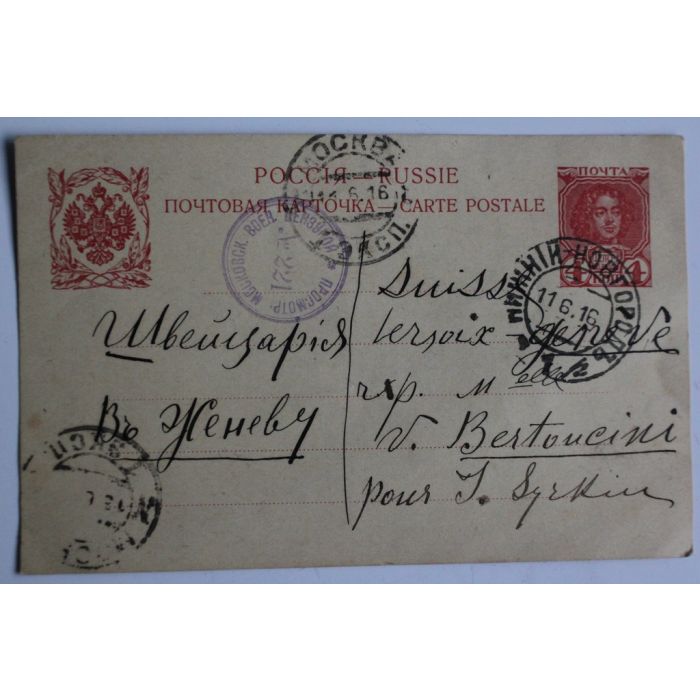 РОССІЯ — RUSSIE
ПОЧТОВАЯ КАРТОЧКА — CARTE POSTALE
ПОЧТА
4 КОП 4
МОСКВА
6.16
ЭКСП.
ПРОСМОТР. МОСКОВСК. ВОЕН. ЦЕНЗУРОЙ
122
НИЖНІЙ НОВГОРОДЪ
11.6.16
Швейцарія
Въ Женеву
Suisse
Versoix genève
M elle
V. Bertoncini
pour J. Syrkin
ЭКСП